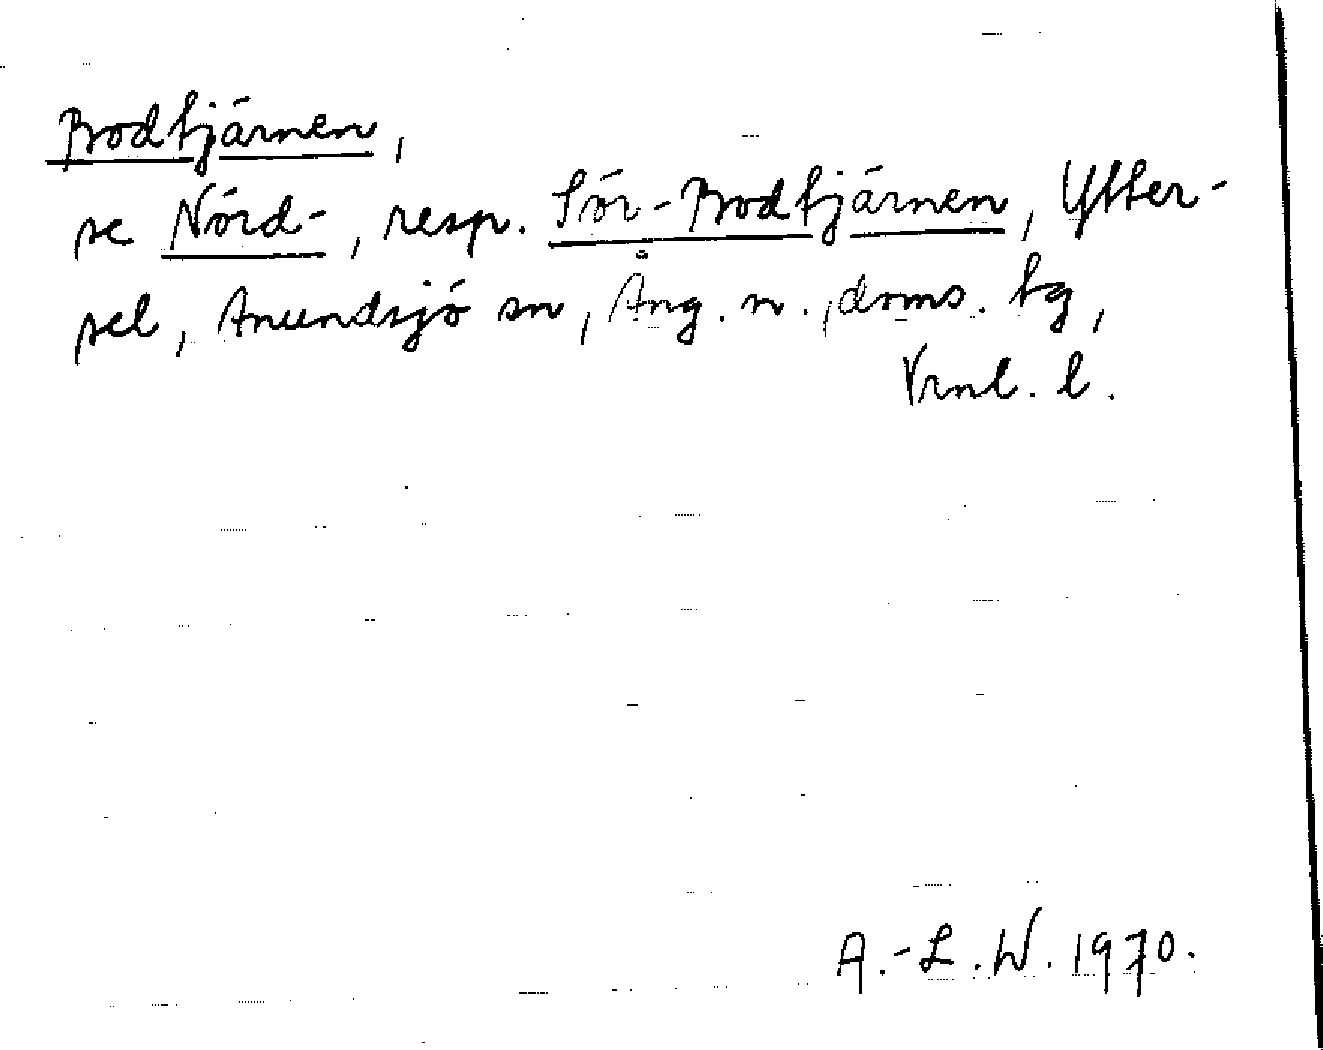 Bodtjärnen,
se Nörd-, resp. Sör-Bodtjärnen, Ytter-
sel, Anundsjö sn, Ång. n., doms. tg,
Vrnl. l.
A.-L.W. 1970.